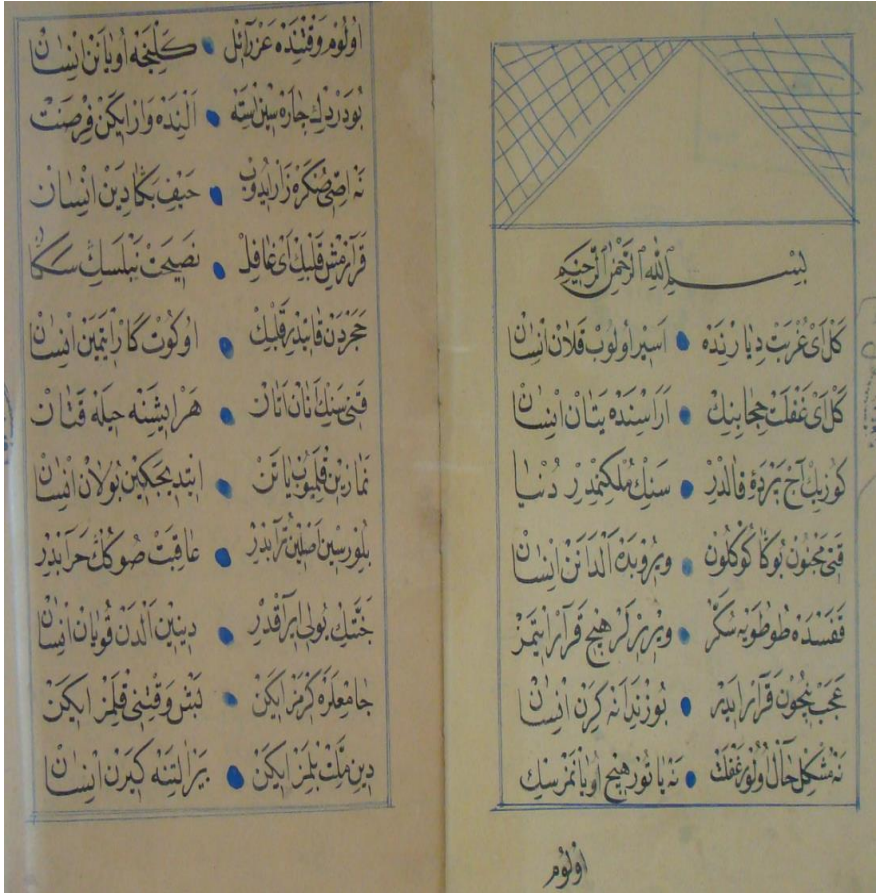 بِسْمِ ٱللّٰهِ ٱلرَّحْمٰنِ ٱلرَّحِيمِ
كَلْ اَیْ غُرْبَتْ دِيَارِنْدَهْ • اَسِيرْ اُولُوبْ قَلَانْ اِنْسَانْ
كَلْ اَیْ غَفْلَتْ حِجَابِنِكْ • اَرَاسِنْدَهْ يَتَانْ اِنْسَانْ
كُوزِيكْ آجْ پَرْدَهٔ قَالْدِرْ • سَنِكْ مُلْكِكْمِدِرْ دُنْيَا
قَنِی مَجْنُونْ بُوكَا كُوكُلُونْ • وِيرُوبَدَهْ اَلْدَانَنْ اِنْسَانْ
قَفَسْدَهْ طُوطُويَهْ شَكَّرْ • وِيرِرْلَرْ هِيچْ قَرَارْ اِتْمَزْ
عَجَبْ نِيچُونْ قَرَارْ اِيدَرْ • بُوزِنْدَانَهْ كِرَنْ اِنْسَانْ
نَهْ مُشْكِلْ حَالْ اُولُورْ غَفْلَتْ • نَهْ يَاتُورْ هِيچْ اُويَانْمَزْسِكْ
اُولُومْ
اُولُومْ وَقْتِنْدَهْ عَزْرَآئِلْ • كَلِنْجَهْ اُويَانَنْ اِنْسَانْ
بُودَرْدِكْ چَارَهْ سِينْ اِسْتَهْ • اَلِنْدَهْ وَارْ اِيكَنْ فِرْصَتْ
نَهْ اِصِّی صُكْرَهْ زَارْ اِيدُوبْ • حَيْفْ بَكَا دِيَنْ اِنْسَانْ
قَرَارْمِشْ قَلْبِكْ اَیْ غَافِلْ • نَصِيحَتْ نَيْلَسِكْ سَكَا
حَجَرْدَنْ قَاتِيدِرْ قَلْبِكْ • اُوكُوتْ كَارْ اِتْمَيَنْ اِنْسَانْ
قَنِی سَنِكْ اَنَانْ اَتَانْ • هَرْ اِيشِنَهْ حِيلَهْ قَتَانْ
نَمَازِينْ قِلْمَيُوبْ يَاتَنْ • اِيتْدِيجَكِينْ بُولَانْ اِنْسَانْ
بِلُورْسِينْ اَصْلِكْ تُرَابْدِرْ • عَاقِبَتْ صُوكُكْ خَرَابْدِرْ
جَنَّتِكْ يُولِی اِيرَاقْدِرْ • دِينِينْ اَلْدَنْ قُويَانْ اِنْسَانْ
جَامِعْلَرَهْ كِرْمَزْ اِيكَنْ • بَشْ وَقْتِنِی قِلْمَزْ اِيكَنْ
دِينْ مِلَّتْ بِلْمَزْ اِيكَنْ • يَرْ اَلْتِنَهْ كِيرَنْ اِنْسَانْ